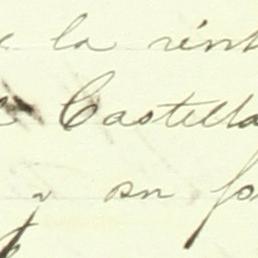 e la rént
Castella
y on fo